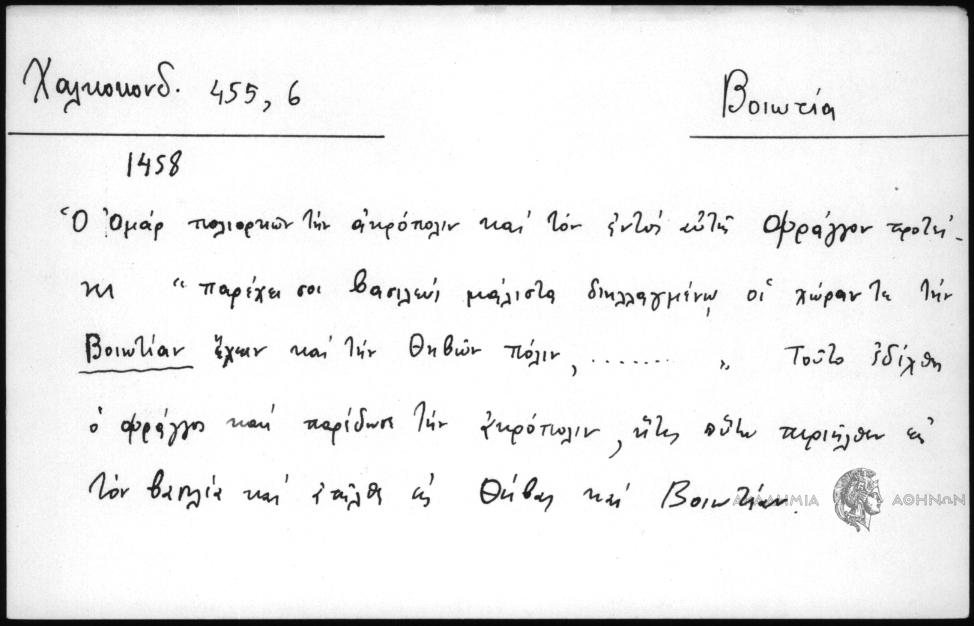 Χαλκοκονδ. 455, 6
Βοιωτία
1458
Ὁ Ὀμάρ πολιορκῶν τήν ἀκρόπολιν καί τόν ἐντός αὐτῆς Φράγγον προτεί-
νει "παρέχει σοι βασιλεύς μάλιστα διηλλαγμένῳ οἱ χώραν τε τήν
Βοιωτίαν ἔχειν καί τήν Θηβῶν πόλιν, ....... " Τοῦτο ἐδέχθη
ὁ φράγγος καί παρέδωσε τήν ἀκρόπολιν, ἥτις οὕτω περιῆλθεν εἰς
τόν βασιλέα καί ἀπῆλθε εἰς Θήβας καί Βοιωτίαν.
ΑΚΑΔΗΜΙΑ ΑΘΗΝΩΝ